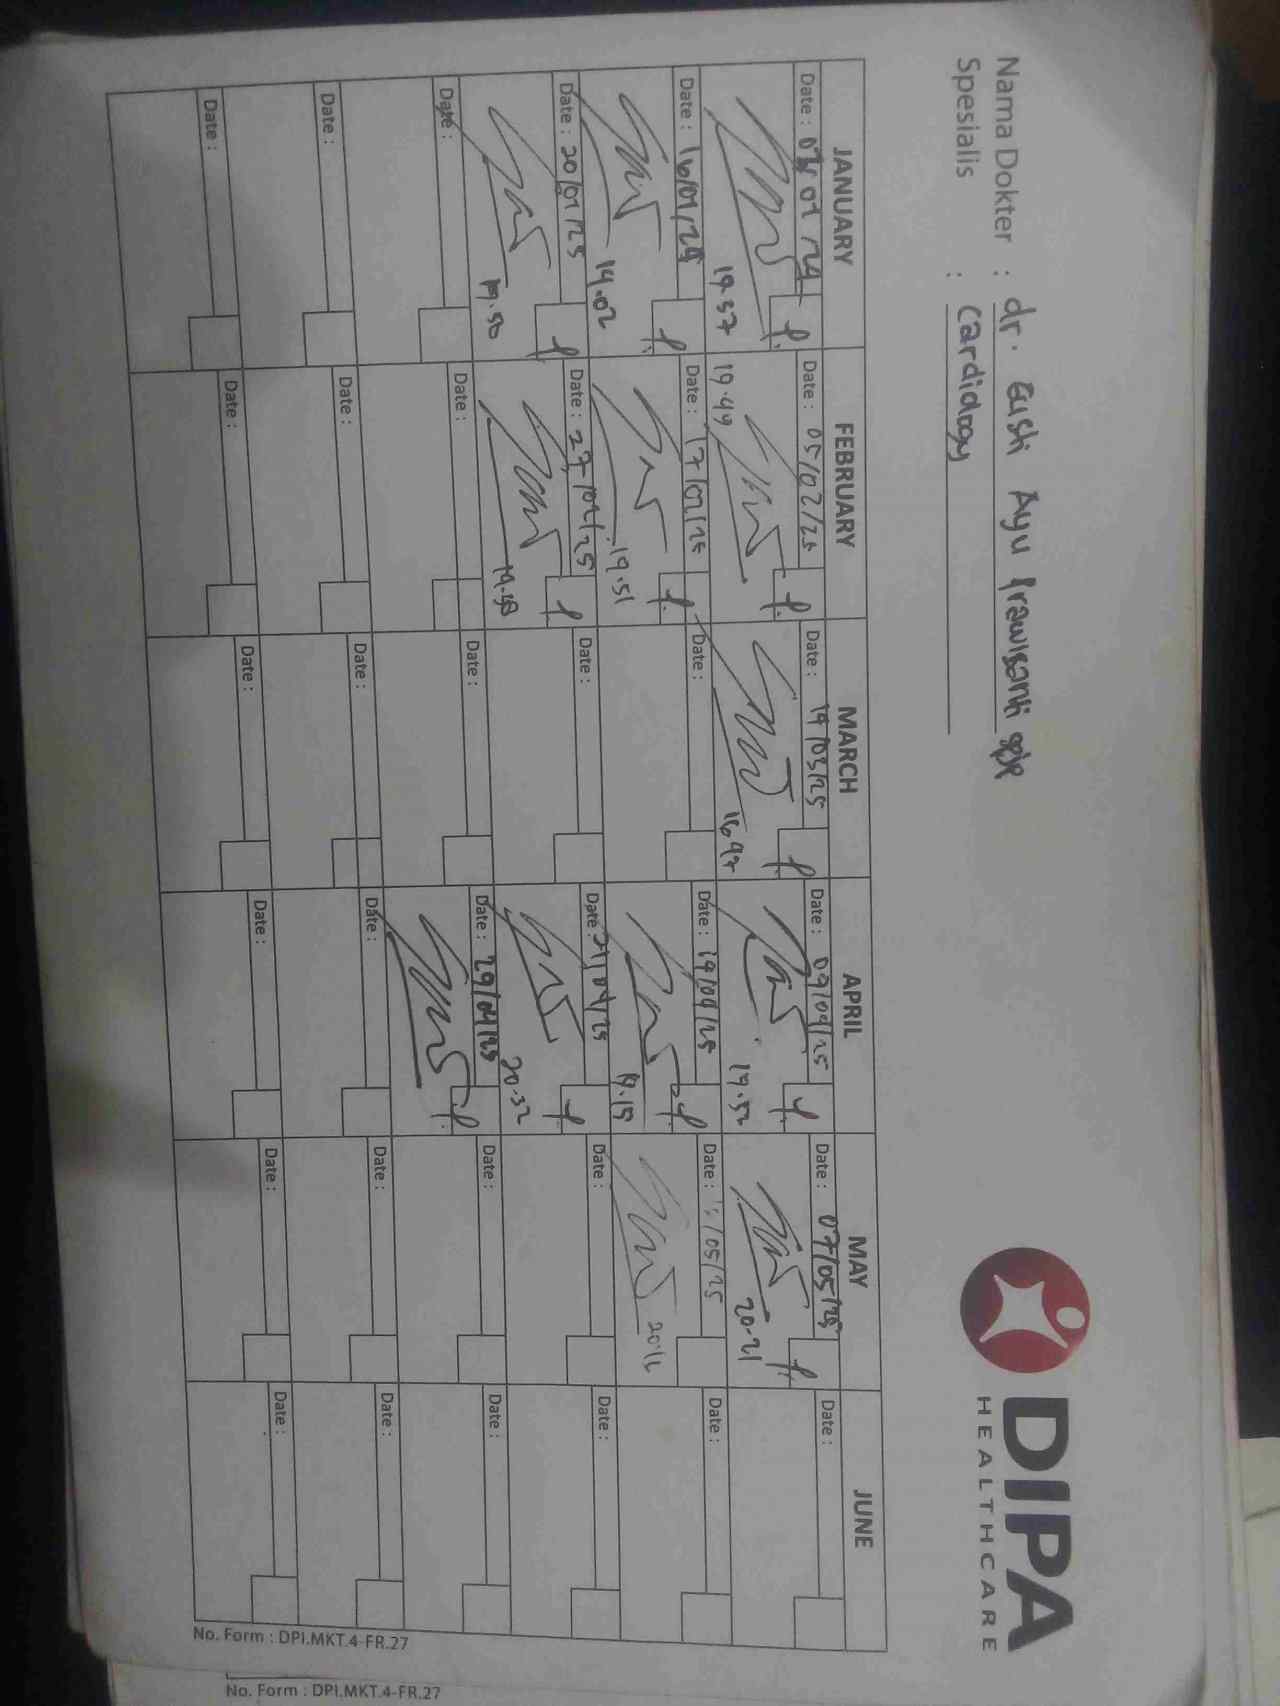 Nama Dokter : dr. Gusti Ayu Prawisanti
Spesialis : Cardidogy
DIPA
HEALTHCARE
JANUARY FEBRUARY MARCH APRIL MAY JUNE
Date : 01 Date : 05/02/25 Date : 19/03/25 Date : 09/04/25 Date : 07/05/25 Date :
19.37 19.49 16.47 19.52 20.21
Date : 16/01/25 Date : 17/02/25 Date : Date : 19/04/25 Date : /05/25 Date :
19.02 19.51 19.19
Date : 20/01/25 Date : 27/02/25 Date : Date : /04/25 Date : Date :
19.50 20.32
Date : Date : Date : Date : 29/04/25 Date : Date :
Date : Date : Date : Date : Date : Date :
Date : Date : Date : Date : Date : Date :
No. Form : DPI.MKT.4-FR.27
No. Form : DPI.MKT.4-FR.27